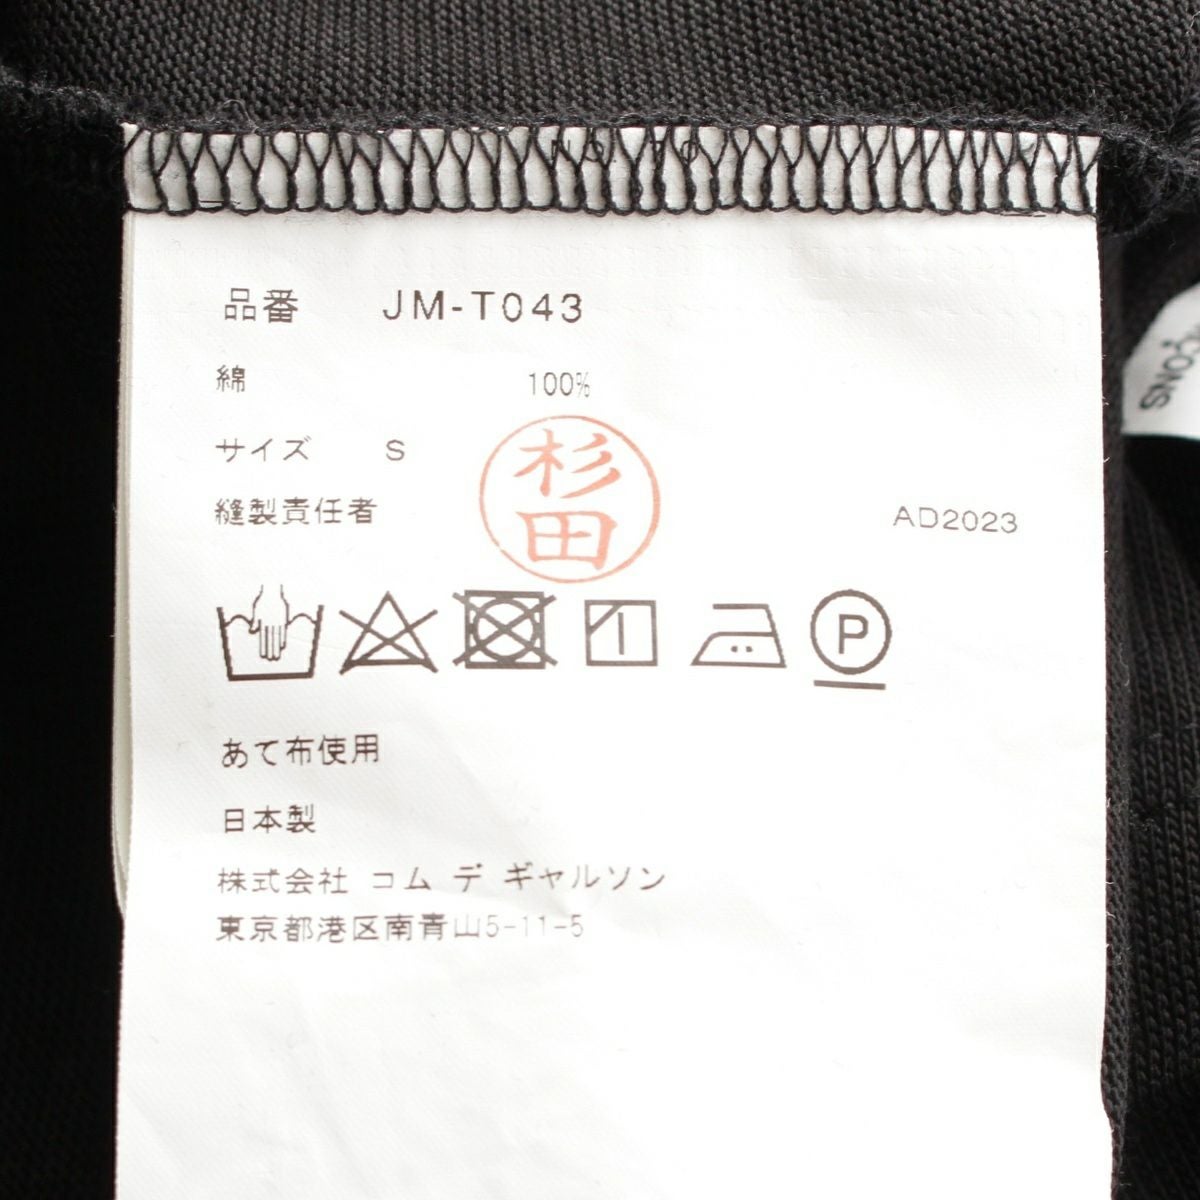 NO. 70
品番 JM-T043
綿 100%
サイズ S
杉田
縫製責任者
AD2023
P
あて布使用
日本製
株式会社 コム デ ギャルソン
東京都港区南青山5-11-5